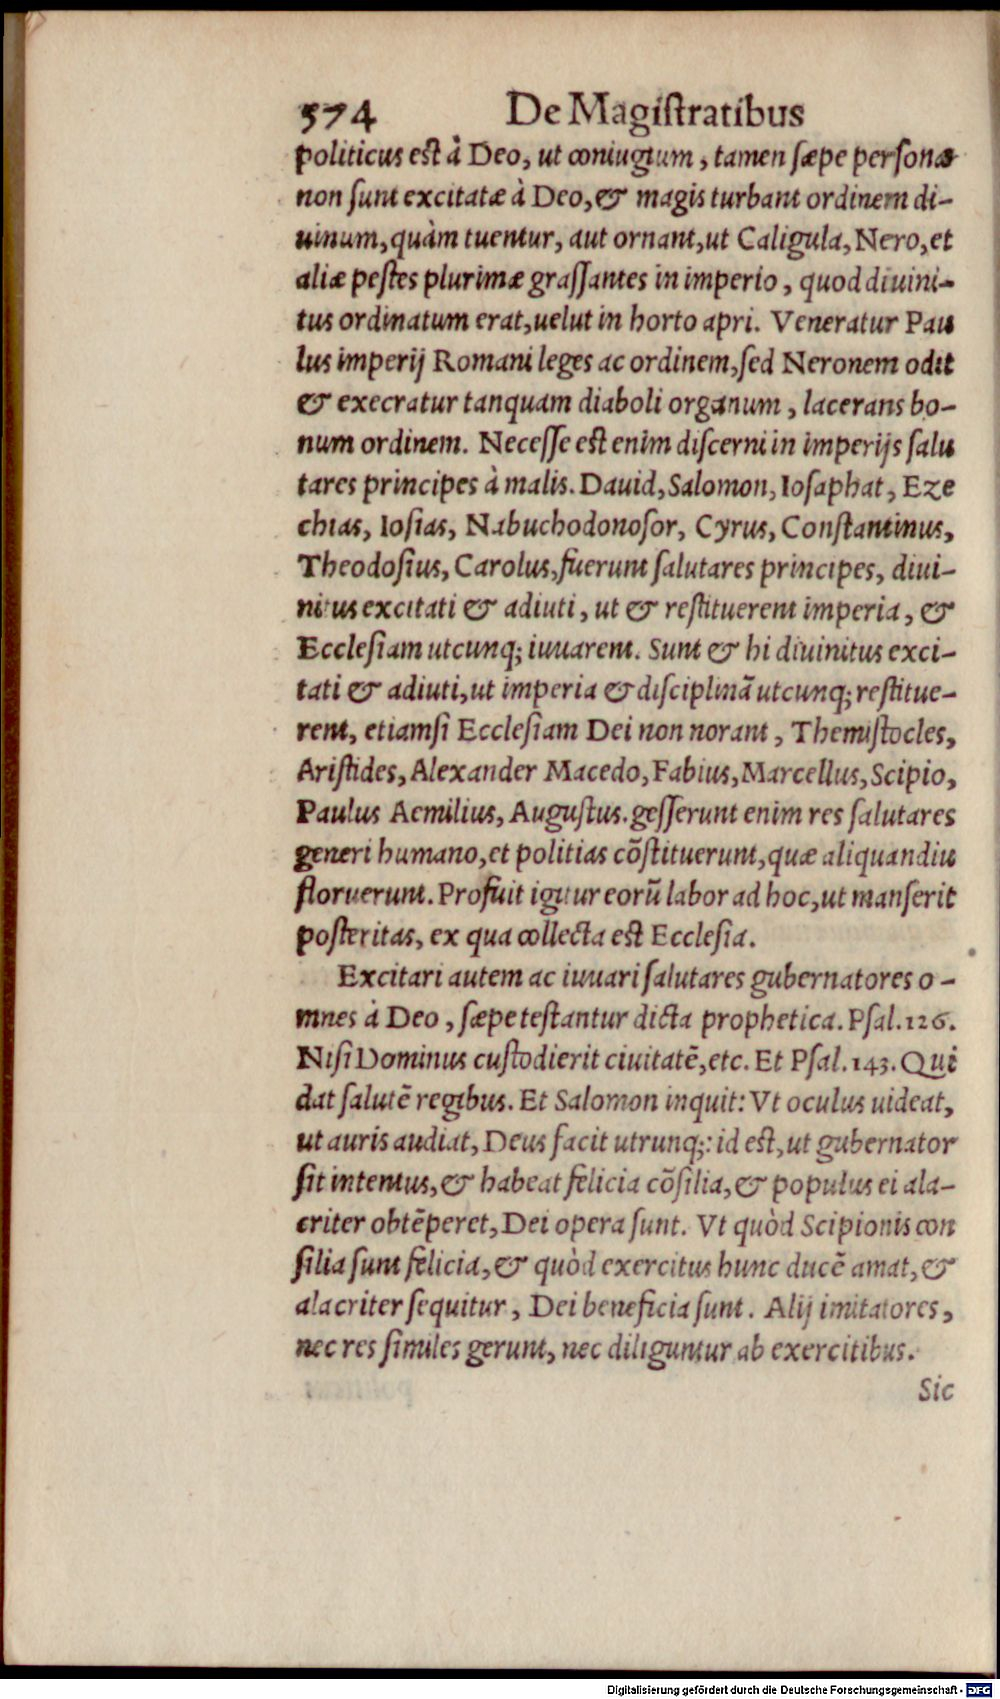 574 De Magiſtratibus
politicus eſt à Deo, ut coniugium, tamen ſæpe perſonæ
non ſunt excitatæ à Deo, & magis turbant ordinem di-
uinum, quàm tuentur, aut ornant, ut Caligula, Nero, et
aliæ peſtes plurimæ graſſantes in imperio, quod diuini-
tus ordinatum erat, uelut in horto apri. Veneratur Pau
lus imperij Romani leges ac ordinem, ſed Neronem odit
& execratur tanquam diaboli organum, lacerans bo-
num ordinem. Neceſſe eſt enim diſcerni in imperijs ſalu
tares principes à malis. Dauid, Salomon, Ioſaphat, Eze
chias, Ioſias, Nabuchodonoſor, Cyrus, Conſtantinus,
Theodoſius, Carolus, fuerunt ſalutares principes, diui-
nitus excitati & adiuti, ut & reſtituerent imperia, &
Eccleſiam utcunq; iuuarent. Sunt & hi diuinitus exci-
tati & adiuti, ut imperia & diſciplinã utcunq; reſtitue-
rent, etiamſi Eccleſiam Dei non norant, Themiſtocles,
Ariſtides, Alexander Macedo, Fabius, Marcellus, Scipio,
Paulus Aemilius, Auguſtus. geſſerunt enim res ſalutares
generi humano, et politias cõſtituerunt, quæ aliquandiu
floruerunt. Profuit igitur eorũ labor ad hoc, ut manſerit
poſteritas, ex qua collecta eſt Eccleſia.
Excitari autem ac iuuari ſalutares gubernatores o-
mnes à Deo, ſæpe teſtantur dicta prophetica. Pſal. 126.
Niſi Dominus cuſtodierit ciuitatẽ, etc. Et Pſal. 143. Qui
dat ſalutẽ regibus. Et Salomon inquit: Vt oculus uideat,
ut auris audiat, Deus facit utrunq;: id eſt, ut gubernator
ſit intentus, & habeat felicia cõſilia, & populus ei ala-
criter obtẽperet, Dei opera ſunt. Vt quòd Scipionis con
ſilia ſunt felicia, & quòd exercitus hunc ducẽ amat, &
alacriter ſequitur, Dei beneficia ſunt. Alij imitatores,
nec res ſimiles gerunt, nec diliguntur ab exercitibus.
Sic
Digitalisierung gefördert durch die Deutsche Forschungsgemeinschaft - DFG